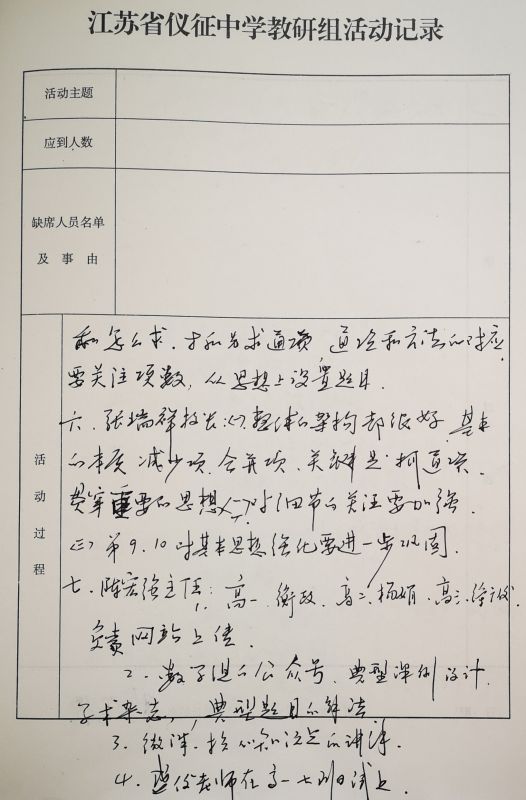 江苏省仪征中学教研组活动记录
活动主题
应到人数
缺席人员名单
及事由
活动过程
和怎么求.才和另求通项 通项和方法的对应
要关注项数,从思想上设置题目.
六、张瑞祥校长(一)整体的架构都很好,基本
的本质 减少项、合并项、关键是 抓通项.
贯穿重要的思想(二)对细节的关注要加强.
(三)第9.10对基本思想强化要进一步巩固.
七、陈宏强主任:1、高一衡政、高二、杨娟、高三、
网站上传
2、数学组的公众号、典型课例设计
学术杂志,典型题目的解法
3、微课、核心知识点的讲洋.
4、老师在高一七班日试上